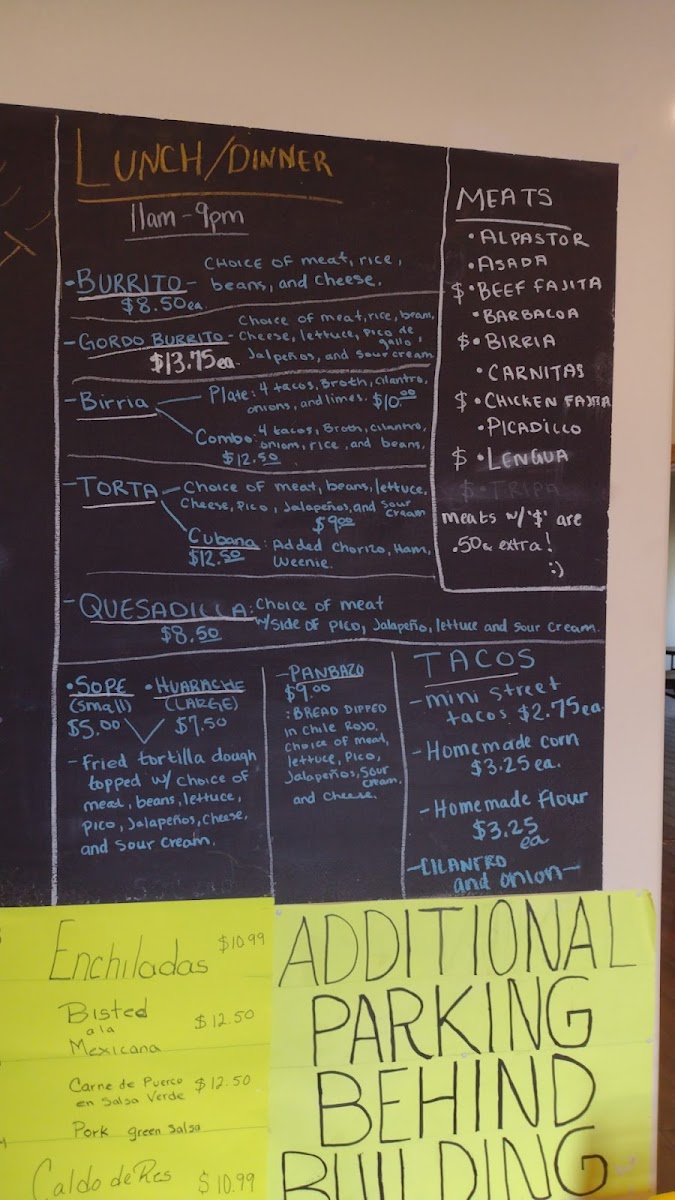 LUNCH/DINNER
11am - 9pm
•BURRITO- CHOICE OF meat, rice,
beans, and cheese.
$8.50ea.
-GORDO BURRITO- Choice of meat, rice, bean,
Cheese, lettuce, Pico de
gallo,
$13.75ea. Jalpeños, and sour cream
-Birria Plate: 4 tacos, Broth, cilantro,
onions, and limes. $10.00
Combo: 4 tacos, Broth, cilantro,
onion, rice, and beans.
$12.50
-TORTA- Choice of meat, beans, lettuce,
Cheese, Pico, Jalapeños, and sour
cream
$9.00
Cubana: Added Chorizo, Ham,
$12.50 Weenie.
-QUESADILLA: Choice of meat
$8.50 w/side of Pico, Jalapeño, lettuce and sour cream.
MEATS
•ALPASTOR
•ASADA
$•BEEF FAJITA
•BARBACOA
$•BIRRIA
•CARNITAS
$•CHICKEN FAJITA
•PICADILLO
$•LENGUA
$•TRIPA
meats w/"$" are
.50¢ extra!
:)
•SOPE •HUARACHE
(Small) (LARGE)
$5.00 $7.50
-Fried tortilla dough
topped w/ choice of
meat, beans, lettuce,
Pico, Jalapeños, cheese,
and sour cream.
-PANBAZO
$9.00
:BREAD DIPPED
in Chile Rojo,
choice of meat,
lettuce, Pico,
Jalapeños, sour
cream,
and cheese.
TACOS
-mini street
tacos $2.75ea.
-Homemade corn
$3.25ea.
-Homemade flour
$3.25
ea
-CILANTRO
and onion-
Enchiladas $10.99
Bisted $12.50
a la
Mexicana
Carne de Puerco $12.50
en Salsa Verde
Pork green salsa
Caldo de Res $10.99
ADDITIONAL
PARKING
BEHIND
BUILDING